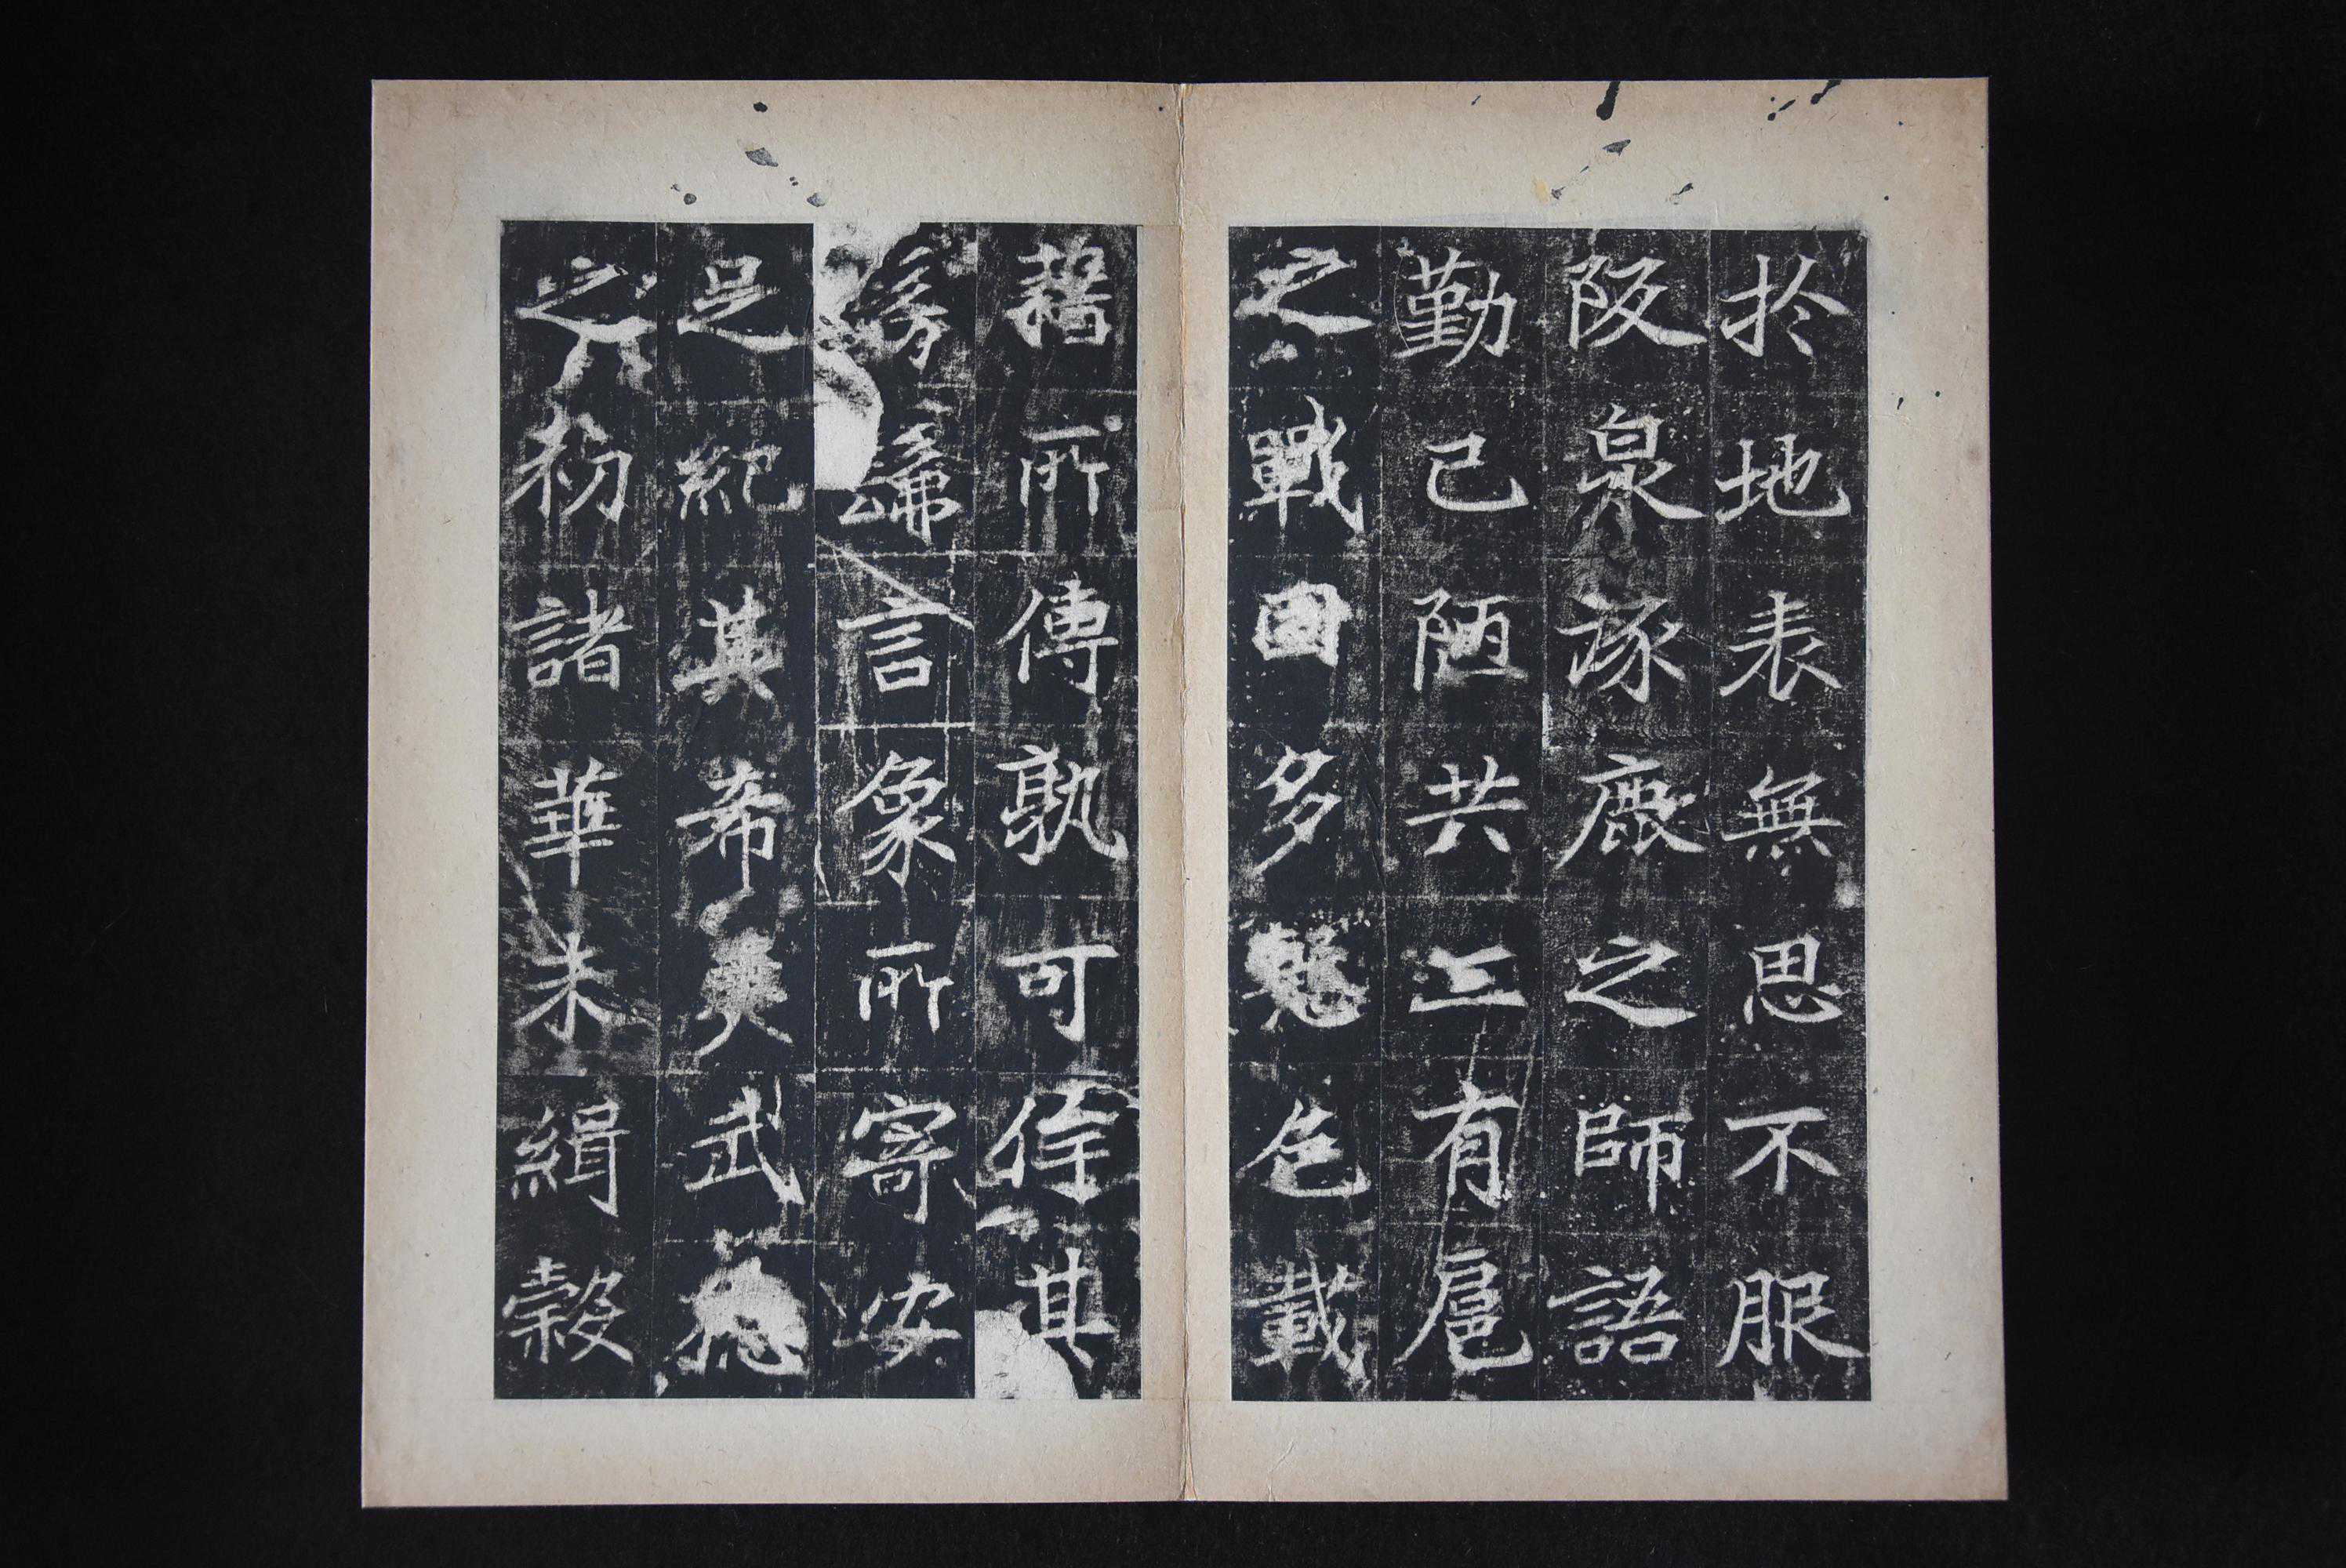 於地表無思不服
阪泉涿鹿之師語
勤已陋共工有扈
之戰固多慙色載
籍所傳孰可侔其
髣髴言象所寄安
足紀其希夷武德
之初諸華未緝穀